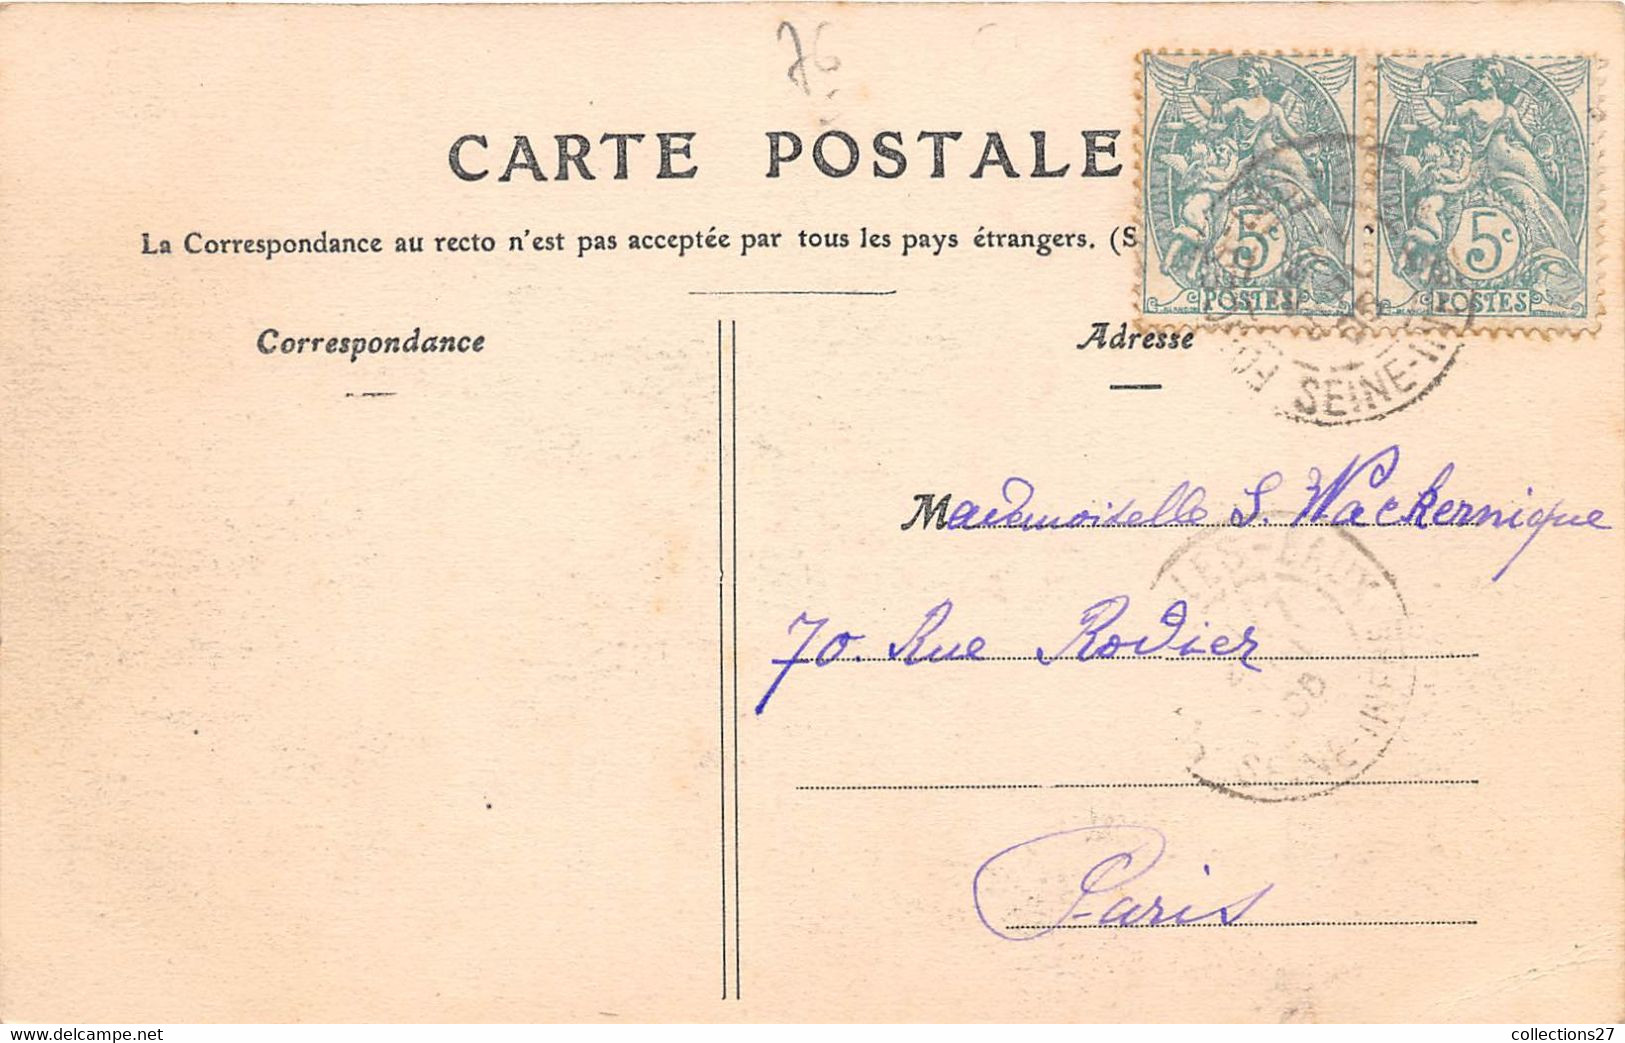 76
CARTE POSTALE
La Correspondance au recto n'est pas acceptée par tous les pays étrangers. (S
5c
POSTES
5c
POSTES
Correspondance
Adresse
SEINE-IN
Mademoiselle S. Wackernique
LES-EAUX
70. Rue Rodier
SEINE-INF
Paris
collections27